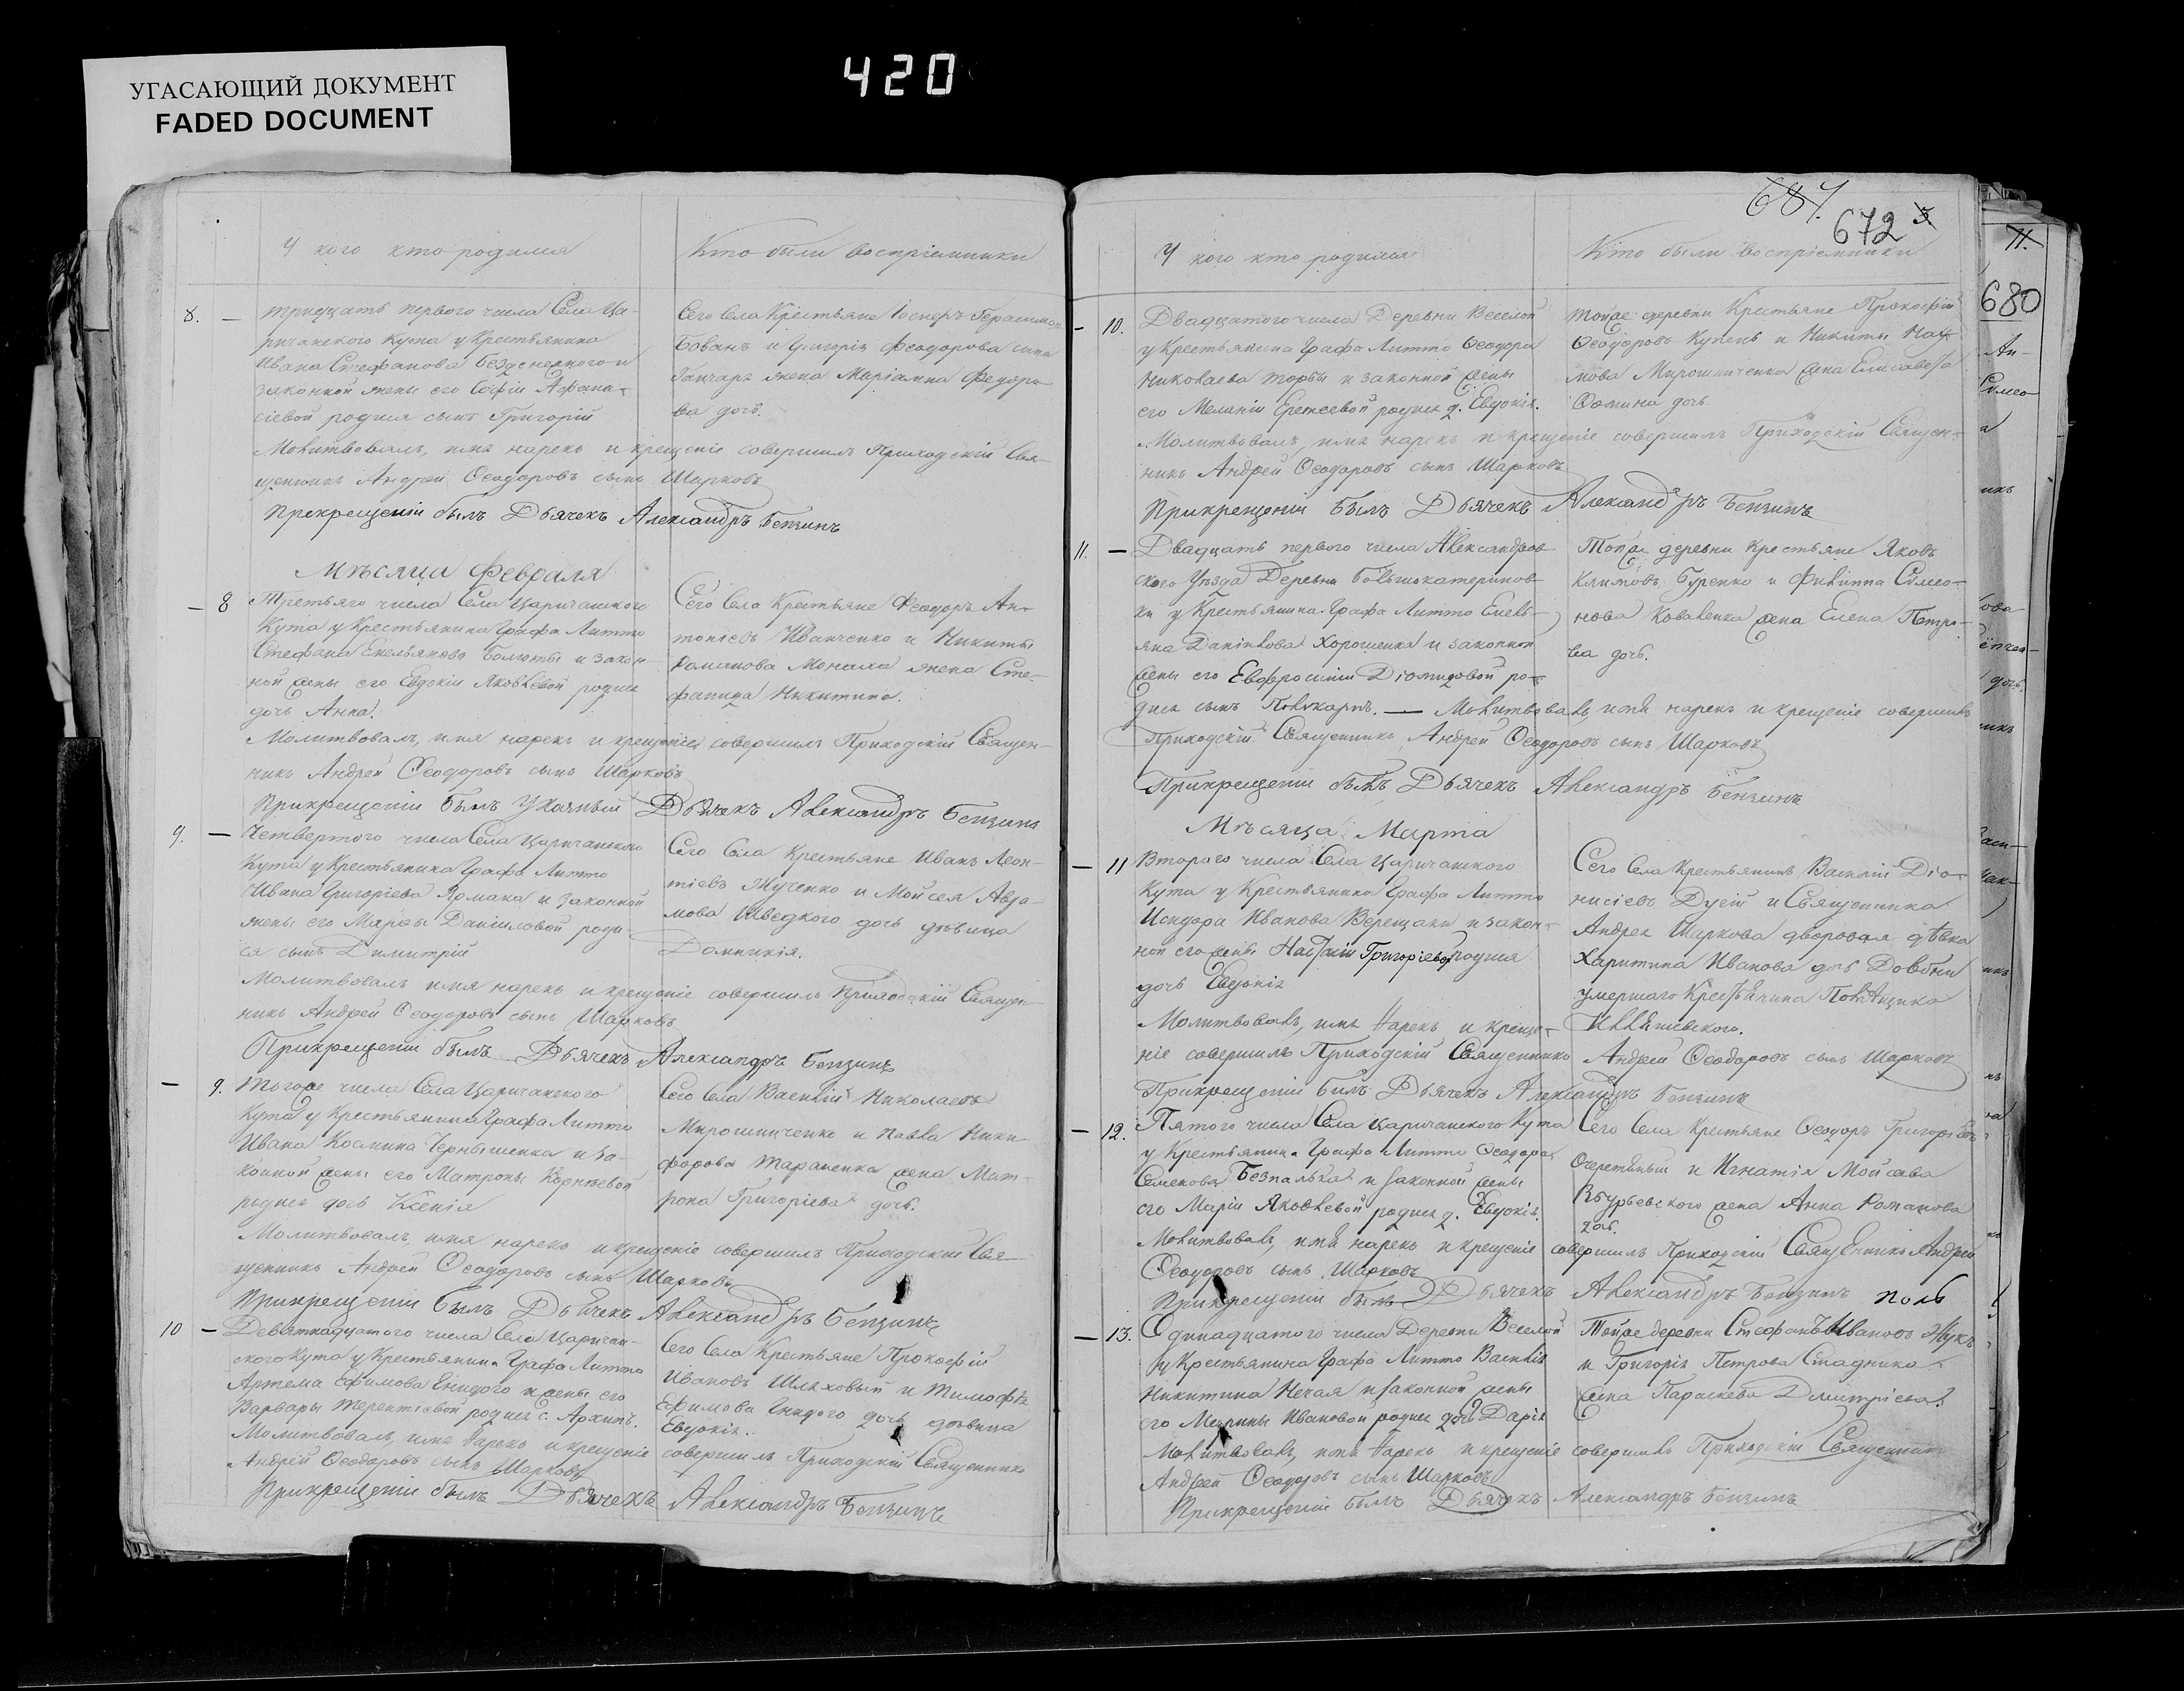 УГАСАЮЩИЙ ДОКУМЕНТ
FADED DOCUMENT
420
У кого кто родился
Кто были воспріемники
8. — тридцать первого числа Села Ца-
ричанского Кута у Крестьянина
Ивана Стефанова и
законной жены его Софіи Афана-
сіевой родился сынъ Григорій
Сего Села Крестьяне Іосифъ Герасимов
и Григорія Феодорова сына
Ганчара жена Маріамна Федоро-
ва дочь.
Молитвовалъ, имя нарекъ и крещеніе совершилъ Приходскій Свя-
щенникъ Андрей Ѳеодоровъ сынъ Шарковъ
Прикрещеніи былъ Дьячекъ Александръ Бензинъ
Мѣсяца Февраля
— 8 Третьяго числа Села Царичанского
Кута у Крестьянина Графа Литто
Стефана Емельянова и закон-
ной жены его Евдокіи Яковлевой родися
дочь Анна.
Сего Села Крестьяне Феодоръ Ан-
тоніевъ Иванченко и Никиты
Романова Монаха жена Сте-
фанида Никитина.
Молитвовалъ, имя нарекъ и крещеніе совершилъ Приходскій Священ-
никъ Андрей Ѳеодоровъ сынъ Шарковъ
Прикрещеніи былъ Указный Дьячекъ Александръ Бензинъ
9. — Четвертого числа Села Царичанского
Кута у Крестьянина Графа Литто
Ивана Григоріева Ярмака и законной
жены его Марѳы Даніиловой роди-
ся сынъ Димитрій
Сего Села Крестьяне Иванъ Леон-
тіевъ Жученко и Мойсея Авра-
мова Шведкого дочь дѣвица
Домникія.
Молитвовалъ имя нарекъ и крещеніе совершилъ Приходскій Священ-
никъ Андрей Ѳеодоровъ сынъ Шарковъ
Прикрещеніи былъ Дьячекъ Александръ Бензинъ
— 9. Тогоже числа Села Царичанского
Кута у Крестьянина Графа Литто
Ивана Космина Чернышенка и за-
конной жены его Матроны Корнѣевой
родися дочь Ксенія
Сего Села Василій Николаевъ
Мирошниченко и Павла Ники-
форова Тараненка жена Мат-
рона Григоріева дочь.
Молитвовалъ, имя нарекъ и крещеніе совершилъ Приходскій Свя-
щенникъ Андрей Ѳеодоровъ сынъ Шарковъ
Прикрещеніи былъ Дьячекъ Александръ Бензинъ
10 — Девятнадцатого числа Села Царичан-
ского Кута у Крестьянина Графа Литто
Артема Ефимова Гнидого и жены его
Варвары Терентіевой родися с. Архипъ.
Сего Села Крестьяне Прокофій
Ивановъ Шляховый и Тимофѣя
Ефимова Гнидого дочь дѣвица
Евдокія.
Молитвовалъ, имя нарекъ и крещеніе совершилъ Приходскій Священникъ
Андрей Ѳеодоровъ сынъ Шарковъ
Прикрещеніи былъ Дьячекъ Александръ Бензинъ
687.
672
У кого кто родился
Кто были воспріемники
— 10. Двадцатого числа Деревни Веселой
у Крестьянина Графа Литто Ѳеодора
Николаева Торбы и законной жены
его Меланіи родися д. Евдокія.
Тойже деревни Крестьяне Прокофій
Ѳеодоровъ Купецъ и Никиты Нау-
мова Мирошниченка жена Елисавета
Ѳомина дочь
Молитвовалъ, имя нарекъ и крещеніе совершилъ Приходскій Священ-
никъ Андрей Ѳеодоровъ сынъ Шарковъ
Прикрещеніи былъ Дьячекъ Александръ Бензинъ
11. — Двадцать первого числа Александров-
ского Уѣзда Деревни Большокатеринов-
ки у Крестьянина Графа Литто Емель-
яна Даніилова Хорошенка и законной
жены его Евфросиніи Діомидовой ро-
дися сынъ Поликарпъ. — Молитвовалъ, имя нарекъ и крещеніе совершилъ
Тойже деревни Крестьяне Яковъ
Климовъ Буренко и Филиппа Симео-
нова Коваленка жена Елена Петро-
ва дочь.
Приходскій Священникъ Андрей Ѳеодоровъ сынъ Шарковъ
Прикрещеніи былъ Дьячекъ Александръ Бензинъ
Мѣсяца Марта
— 11 Второго числа Села Царичанского
Кута у Крестьянина Графа Литто
Исидора Иванова Верещаки и закон-
ной его жены Настасіи Григоріевой родися
дочь Евдокія
Сего Села Крестьянинъ Василій Діо-
нисіевъ Дусій и Священника
Андрея Шаркова дворовая дѣвка
Харитина Иванова дочь Довбни
умершаго Крестьянина Помѣщика
Молитвовалъ, имя нарекъ и креще-
ніе совершилъ Приходскій Священникъ Андрей Ѳеодоровъ сынъ Шарковъ
Прикрещеніи былъ Дьячекъ Александръ Бензинъ
— 12. Пятого числа Села Царичанского Кута
у Крестьянина Графа Литто Ѳеодора
Семенова Безпалька и законной жены
его Маріи Яковлевой родися д. Евдокія.
Сего Села Крестьяне Ѳеодоръ Григоріевъ
Очеретяный и Игнатія Мойсеева
жена Анна Романова
дочь.
Молитвовалъ, имя нарекъ и крещеніе совершилъ Приходскій Священникъ Андрей
Ѳеодоровъ сынъ Шарковъ
Прикрещеніи былъ Дьячекъ Александръ Бензинъ
— 13. Одинадцатого числа Деревни Веселой
у Крестьянина Графа Литто Василія
Никитина Нечая и законной жены
его Марины Ивановой родися дочь Дарія
Тойже деревни Стефанъ Ивановъ Жукъ
и Григорія Петрова Стадника
жена Параскева Дмитріева.
Молитвовалъ, имя нарекъ и крещеніе совершилъ Приходскій Священникъ
Андрей Ѳеодоровъ сынъ Шарковъ
Прикрещеніи былъ Дьячекъ Александръ Бензинъ
11.
680